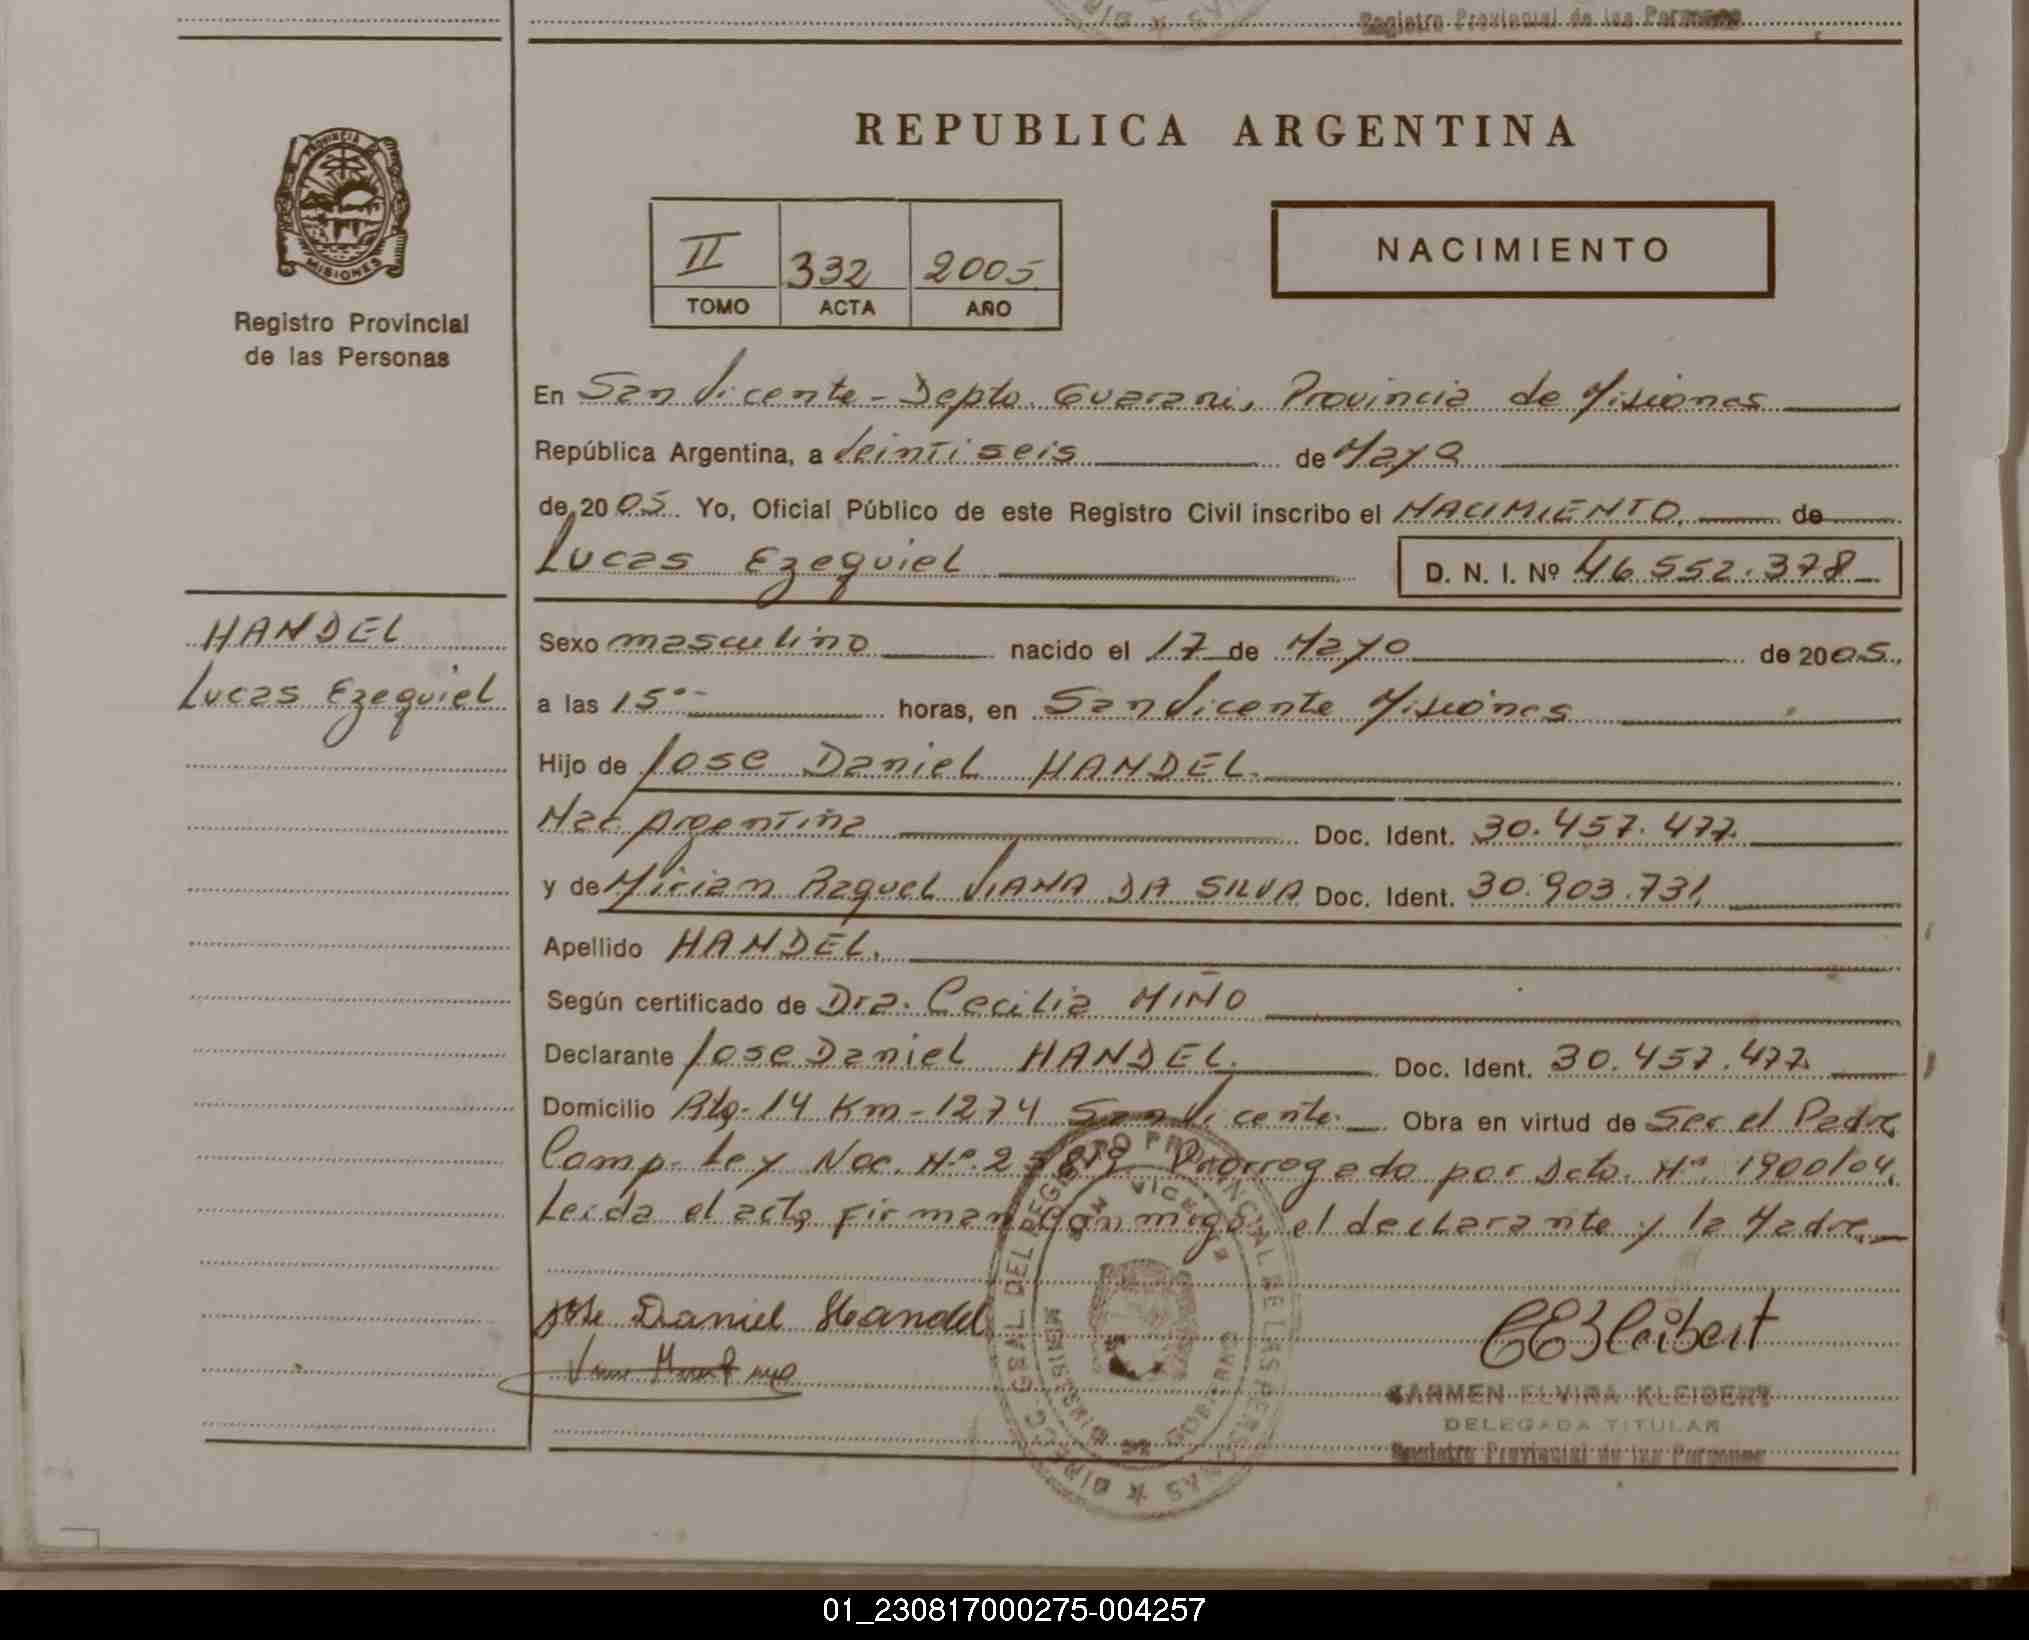 Registro Provincial de las Personas
REPUBLICA ARGENTINA
PROVINCIA DE
MISIONES
Registro Provincial
de las Personas
II 332 2005
TOMO ACTA AÑO
NACIMIENTO
En San Vicente - Depto. Guarani, Provincia de Misiones
República Argentina, a Veintiseis de Mayo
de 2005. Yo, Oficial Público de este Registro Civil inscribo el NACIMIENTO de
Lucas Ezequiel D. N. I. Nº 46.552.378
HANDEL
Lucas Ezequiel
Sexo masculino nacido el 17 de Mayo de 2005.
a las 15 horas, en San Vicente Misiones
Hijo de Jose Daniel HANDEL.
Nac. Argentina Doc. Ident. 30.457.477.
y de Miriam Raquel VIANA DA SILVA Doc. Ident. 30.903.731.
Apellido HANDEL.
Según certificado de Dra. Cecilia MIÑO
Declarante Jose Daniel HANDEL. Doc. Ident. 30.457.477.
Domicilio Rta. 14 Km-1274 San Vicente. Obra en virtud de Ser el Padre
Comp. Ley Nac. Nº Prorrogado por Dcto. Nº 1900/04.
Leida el acta firman conmigo el declarante y la Madre.
Jose Daniel Handel
CEKleibert
CARMEN ELVIRA KLEIBERT
DELEGADA TITULAR
Registro Provincial de las Personas
DIRECC. GRAL. DEL REGISTRO PROVINCIAL DE LAS PERSONAS
SAN VICENTE
MINISTERIO DE GOBIERNO
01_230817000275-004257